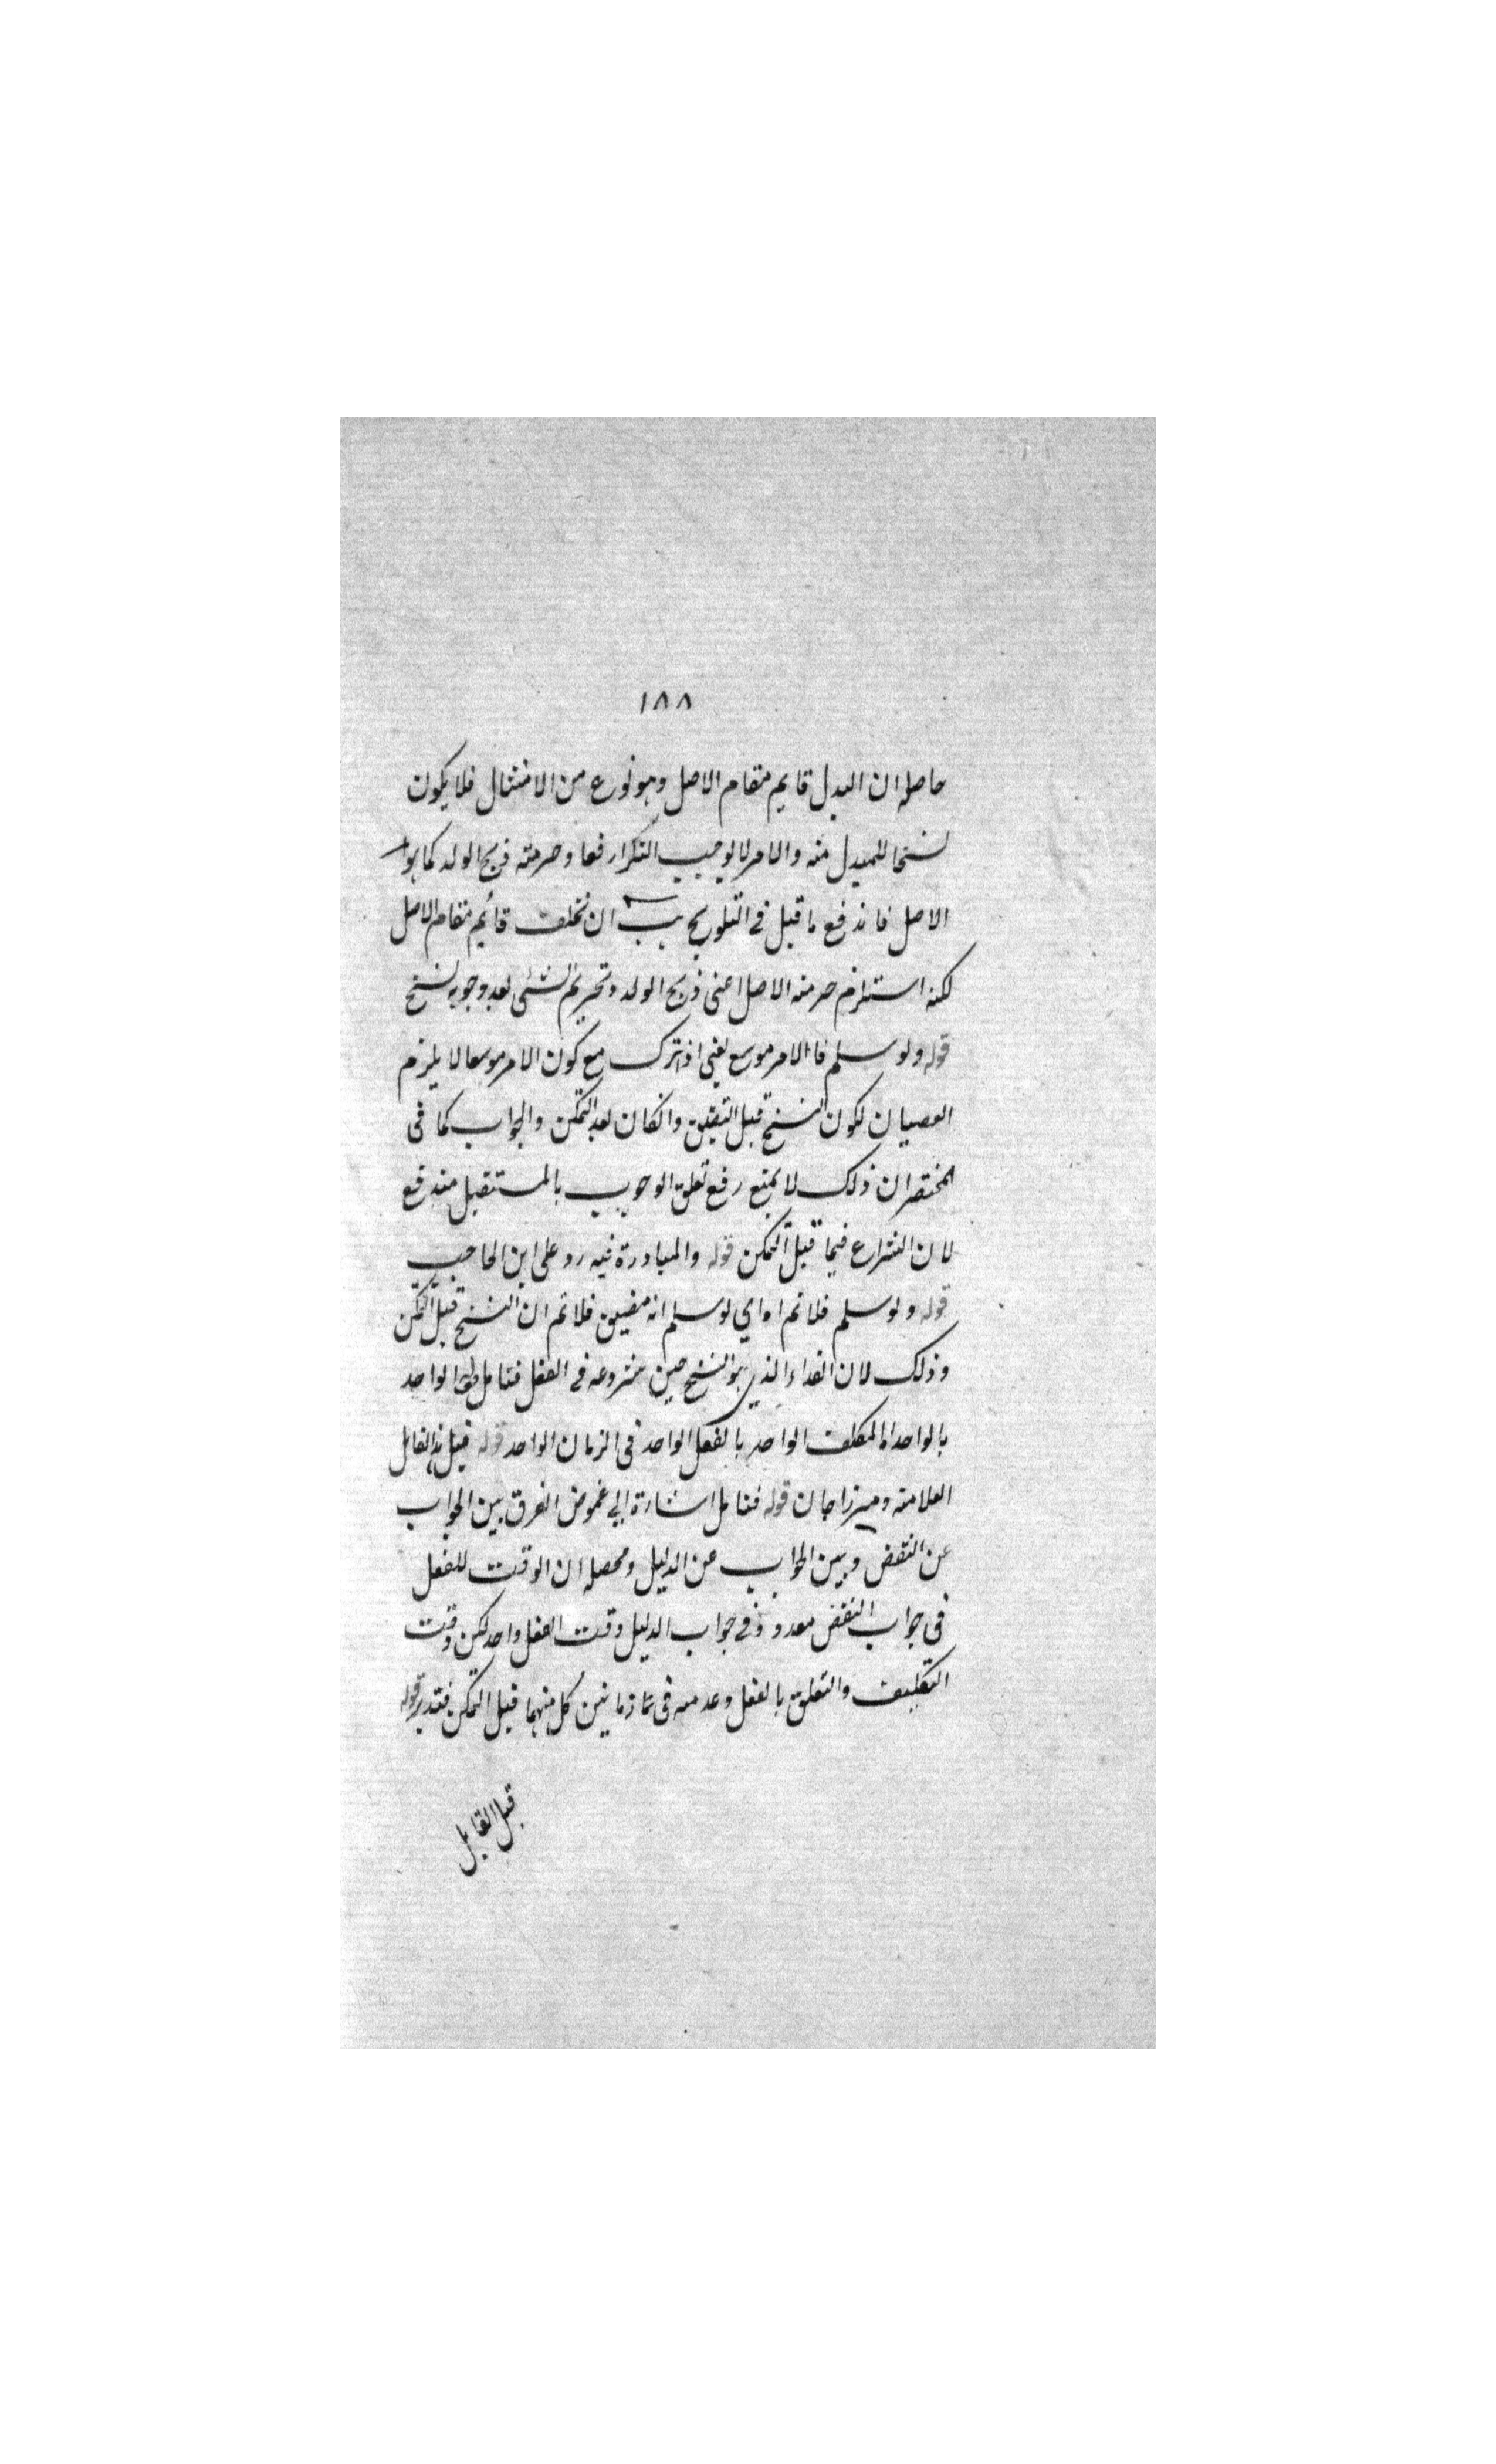 ١٨٨
حاصله ان البدل قايم مقام الاصل وهو نوع من الامتثال فلا يكون
نسخا للمبدل منه والامر لا يوجب التكرار فعا وحرمته ذبح الولد كما هو
الاصل فاندفع ما قيل في التلويح ان الخلف قائم مقام الاصل
لكنه استلزم حرمته الاصل اعنى ذبح الولد وتحريم الشئ بعد وجوبه نسخ
قوله ولو سلم فالامر موسع يعنى اذ الترك مع كون الامر موسعا لا يلزم
العصيان لكون النسخ قبل التضيق وانكان بعد التمكن والجواب كما فى
المختصر ان ذلك لا يمنع رفع تعلق الوجوب بالمستقبل مندفع
لان النزاع فيما قبل التمكن قوله والمبادرة فيه رد على ابن الحاجب
قوله ولو سلم فلا نم اه اي لو سلم انه مضيق فلا نم ان النسخ قبل التمكن
وذلك لان الفداء الذي هو النسخ حين شروعه فى الفعل فتامل الواحد
بالواحد اه المكلف الواحد بالفعل الواحد فى الزمان الواحد قوله قيل القائل
العلامته وميرزاجان قوله فتامل اشارة الى غموض الفرق بين الجواب
عن النقض وبين الجواب عن الدليل ومحصله ان الوقت للفعل
فى جواب النقض معدود وفى جواب الدليل وقت الفعل واحد لكن وقت
التكليف والتعلق بالفعل وعدمه فى زمانين كل منهما قبل التمكن فتدبر قوله
قيل القايل